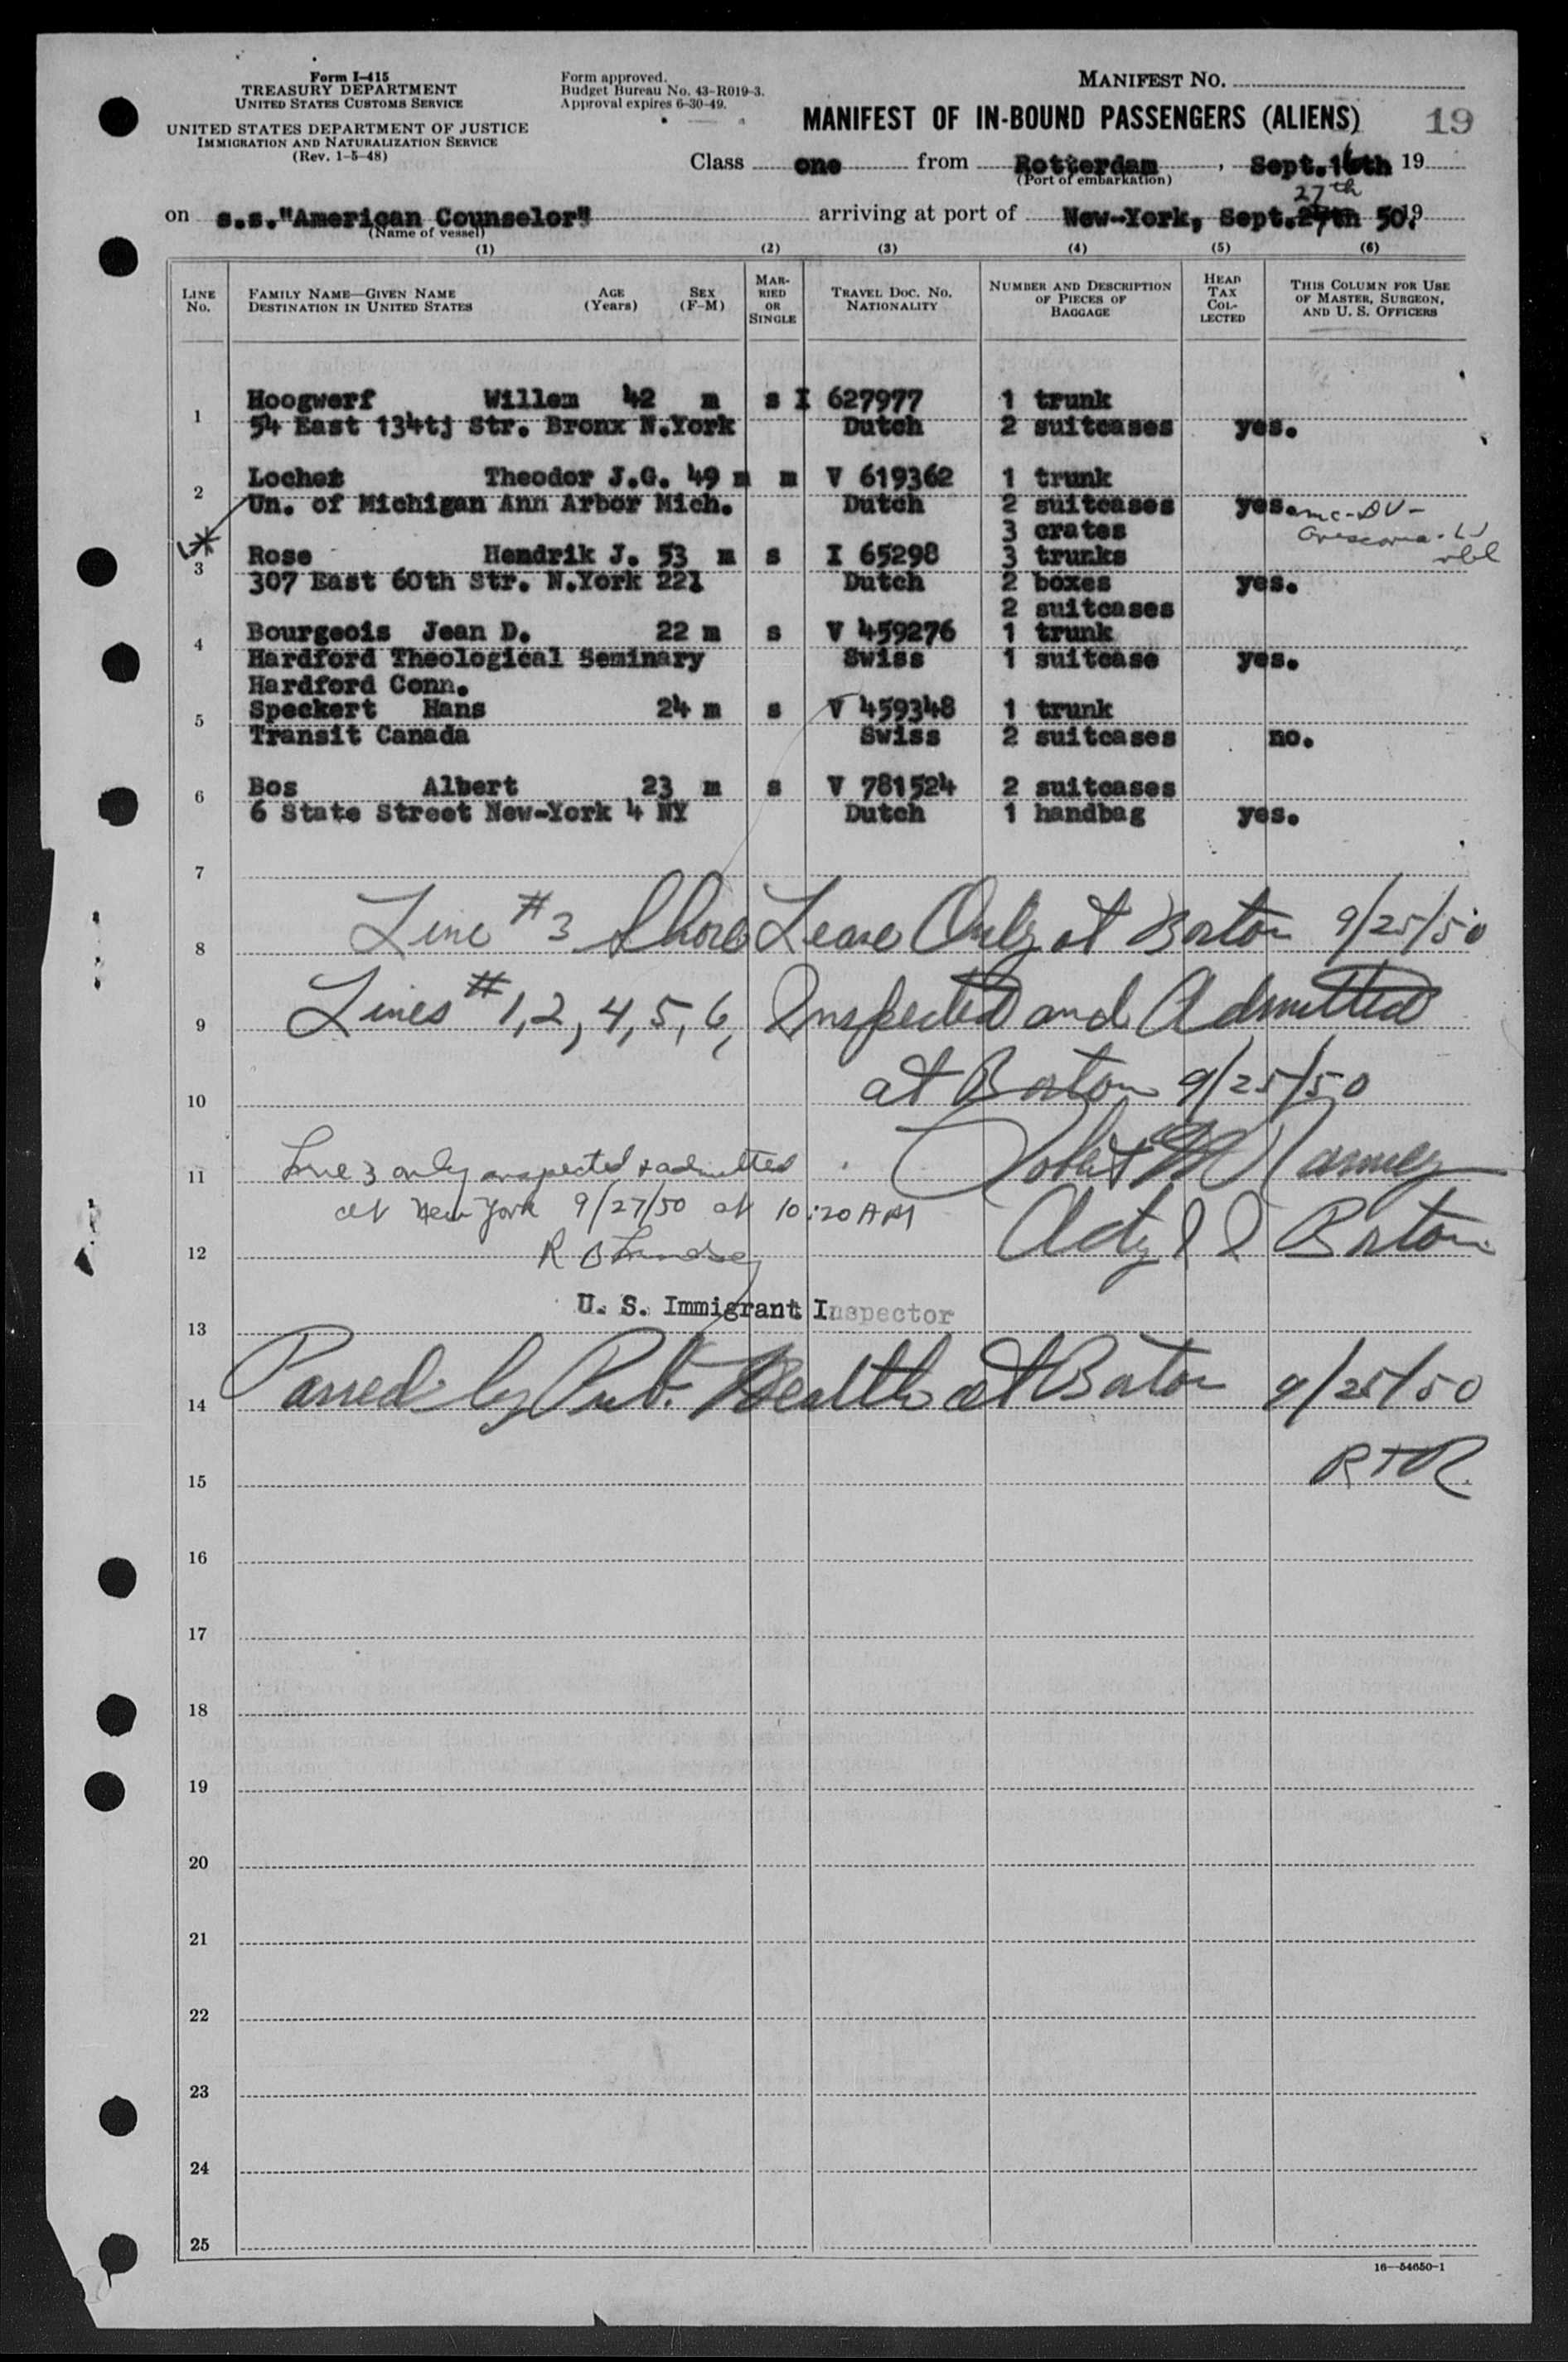 Form I-415
TREASURY DEPARTMENT
UNITED STATES CUSTOMS SERVICE
UNITED STATES DEPARTMENT OF JUSTICE
IMMIGRATION AND NATURALIZATION SERVICE
(Rev. 1-5-48)
Form approved.
Budget Bureau No. 43-R019-3.
Approval expires 6-30-49.
MANIFEST NO.
MANIFEST OF IN-BOUND PASSENGERS (ALIENS) 19
Class one from Rotterdam, Sept.16th 19
(Port of embarkation)
27th
on s.s."American Counselor" arriving at port of New-York, Sept. 50. 19
(Name of vessel)
(1) (2) (3) (4) (5) (6)
LINE No. FAMILY NAME—GIVEN NAME DESTINATION IN UNITED STATES AGE (Years) SEX (F-M) MARRIED OR SINGLE TRAVEL DOC. NO. NATIONALITY NUMBER AND DESCRIPTION OF PIECES OF BAGGAGE HEAD TAX COLLECTED THIS COLUMN FOR USE OF MASTER, SURGEON, AND U. S. OFFICERS
1 Hoogwerf Willem 42 m s I 627977 1 trunk
54 East 134tj Str. Bronx N.York Dutch 2 suitcases yes.
2 Locher Theodor J.G. 49 m m V 619362 1 trunk
Un. of Michigan Ann Arbor Mich. Dutch 2 suitcases yes.
3 crates
3 Rose Hendrik J. 53 m s I 65298 3 trunks
307 East 60th Str. N.York 221 Dutch 2 boxes yes.
2 suitcases
4 Bourgeois Jean D. 22 m s V 459276 1 trunk
Hardford Theological Seminary Swiss 1 suitcase yes.
Hardford Conn.
5 Speckert Hans 24 m s V 459348 1 trunk
Transit Canada Swiss 2 suitcases no.
6 Bos Albert 23 m s V 781524 2 suitcases
6 State Street New-York 4 NY Dutch 1 handbag yes.
7
8 Line #3 Shore Leave Only at Boston 9/25/50
9 Lines # 1, 2, 4, 5, 6, Inspected and Admitted
10 at Boston 9/25/50
11 Line 3 only inspected & admitted Robert
at New York 9/27/50 at 10:20 AM
12 R B Boston
U. S. Immigrant Inspector
13
14 Passed by Pub. Health at Boston 9/25/50
15
16
17
18
19
20
21
22
23
24
25
16—54650-1